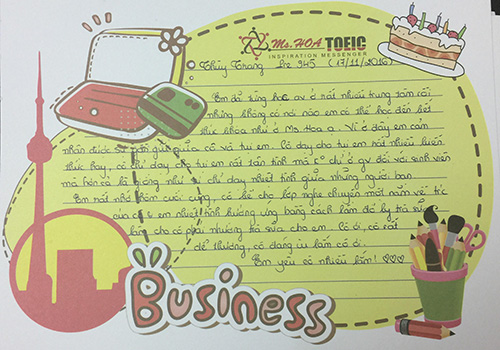 Ms. HOA TOEIC
INSPIRATION MESSENGER
Thùy Trang Pre 945 (17/11/2016)
Em đã từng học av ở rất nhiều trung tâm rồi
nhưng không có nơi nào em có thể học đến hết
khóa như ở Ms. Hoa ạ. Vì ở đây em cảm
nhận được sự gần gũi giữa cô và tụi em. Cô dạy cho tụi em rất nhiều kiến
thức hay, cô chỉ dạy cho tụi em rất tận tình mà k dự ở gv đối với sinh viên
mà hơn cả là giống như sự chỉ dạy nhiệt tình giữa những người bạn
Em rất nhớ hôm cuối cùng, cô kể cho lớp nghe chuyện một năm về
của cô & em nhiệt tình hưởng ứng bằng cách làm đổ ly trà sữa
làm cho cô phải nhường trà sữa cho em. Cô ơi, cô rất
dễ thương, cô đáng iu lắm cô ơi.
Em yêu cô nhiều lắm! ♡♡♡
Business